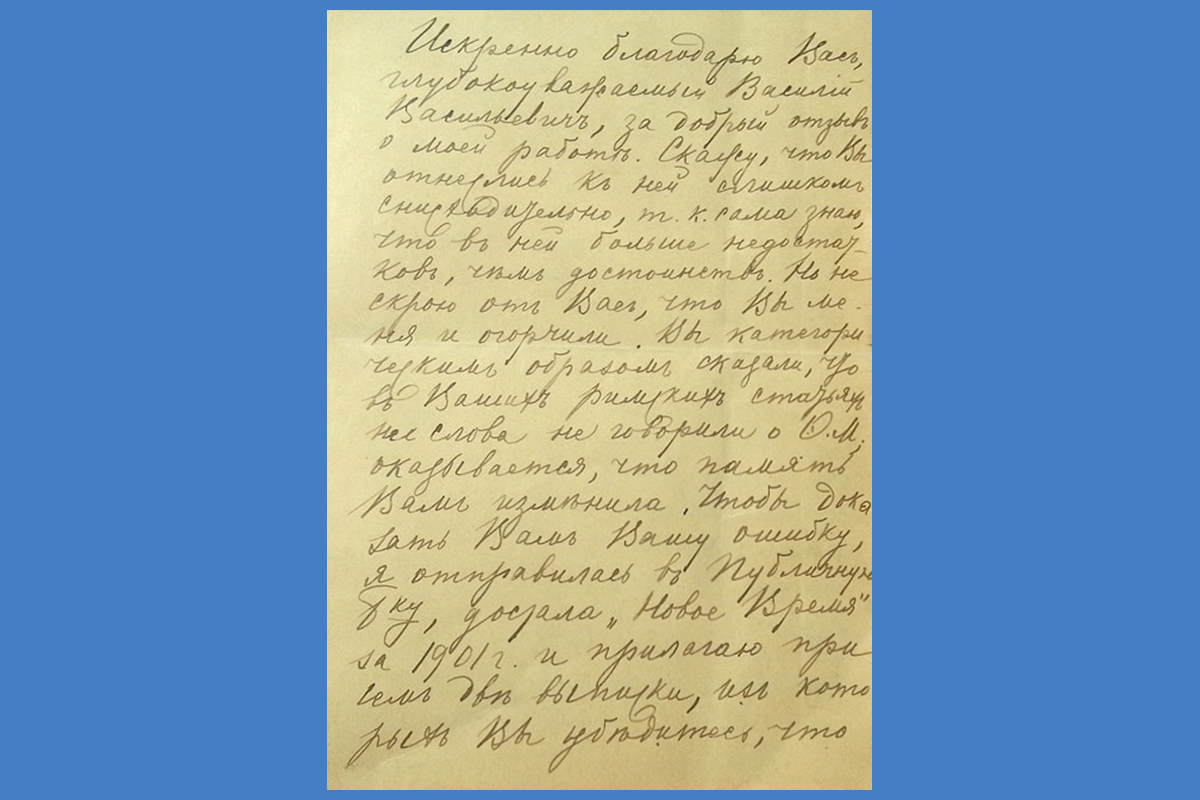 Искренно благодарю Васъ,
глубокоуважаемый Василій
Васильевичъ, за добрый отзывъ
о моей работѣ. Скажу, что Вы
отнеслись къ ней слишкомъ
снисходительно, т. к. сама знаю,
что въ ней больше недостат-
ковъ, чѣмъ достоинствъ. Но не
скрою отъ Васъ, что Вы ме-
ня и огорчили. Вы категори-
ческимъ образомъ сказали, что
въ Вашихъ римскихъ статьяхъ
не слова не говорили о О.М.
оказывается, что память
Вамъ измѣнила. Чтобы дока
зать Вамъ Вашу ошибку,
я отправилась въ Публичную
б-ку, достала „Новое Время"
за 1901 г. и прилагаю при
семъ двѣ выписки, изъ кото
рыхъ Вы убѣдитесь, что